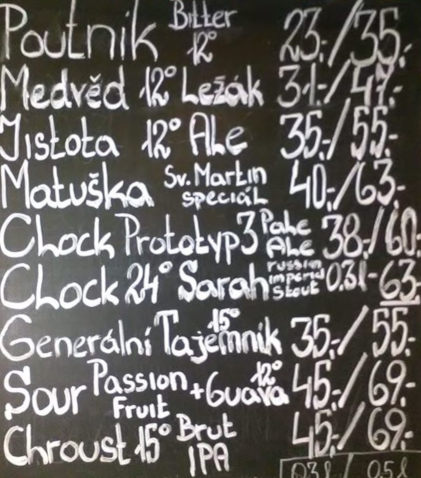 Poutník Bitter 12° 23,-/35,-
Medvěd 12° Ležák 31,-/47,-
Jistota 12° Ale 35,-/55,-
Matuška Sv. Martin speciál 40,-/63,-
Chock Prototyp 3 Pale Ale 38,-/60,-
Chock 24° Sarah russian imperial stout 0.3l - 63,-
Generální Tajemník 15° 35,-/55,-
Sour Passion Fruit + Guava 12° 45,-/69,-
Chroust 15° Brut IPA 45,-/69,-
0.3l / 0.5l